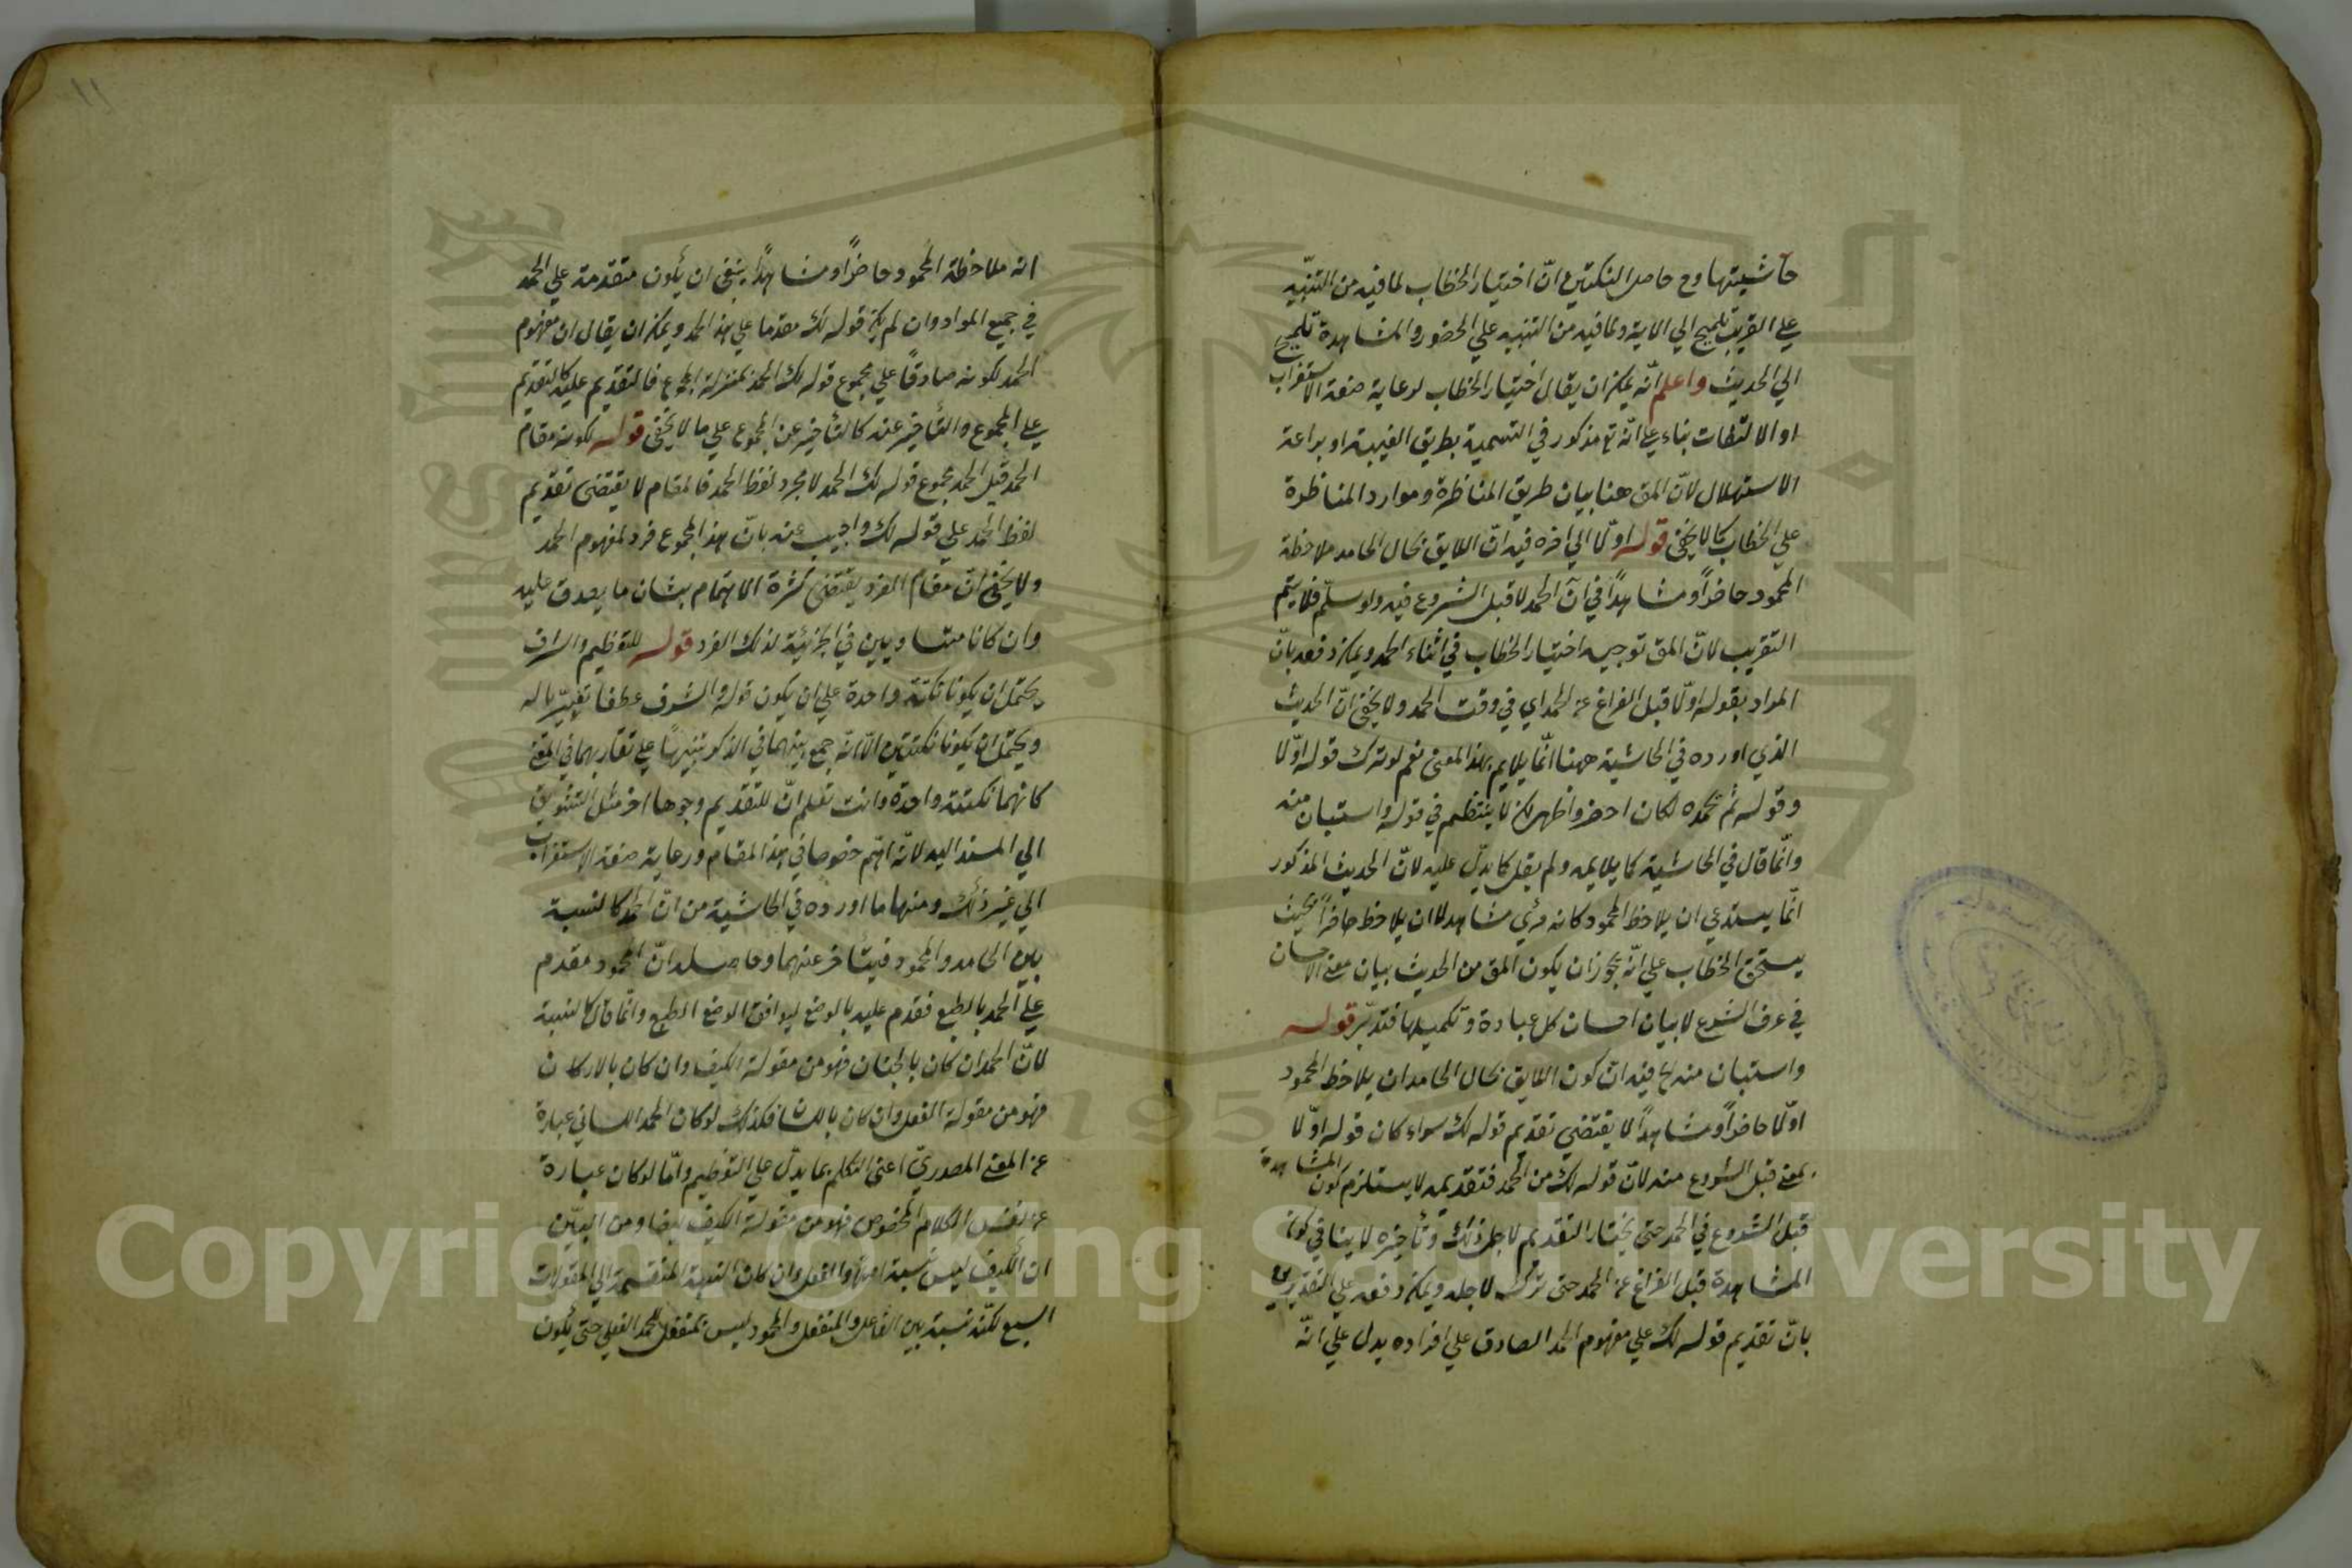 حاشيتها وح حاصل النكتتين انّ اختيار الخطاب لما فيه من التنبيه
علي القريب تلميح الي الاية ولما فيه من التنبيه علي الحضور والمشاهدة تلميح
الي الحديث واعلم انّه يمكن ان يقال اختيار الخطاب لرعاية صنعة الاستغراب
او الالتفات بناء علي انّه تع مذكور في التسمية بطريق الغيبة او براعة
الاستهلال لانّ المق هنا بيان طريق المناظرة وموارد المناظرة
علي الخطاب كما لا يخفي قوله اوّلا الي اخره فيه انّ اللايق بحال الحامد ملاحظة
المحمود حاضراً ومشاهداً في آن الحمد لا قبل الشروع فيه ولو سلّم فلا يتم
التقريب لانّ المق توجيه اختيار الخطاب في اثناء الحمد ويمكن دفعه بانّ
المراد بقوله اوّلا قبل الفراغ عن الحمد اي في وقت الحمد ولا يخفي انّ الحديث
الذي اورده في الحاشية ههنا انّما يلايم بهذا المعني نعم لو ترك قوله اوّلا
وقوله ثم نحمده لكان احضر واظهر لكن لا ينتظم في قوله واستبان منه
وانّما قال في الحاشية كما يلايمه ولم يقل كما يدلّ عليه لانّ الحديث المذكور
انّما يستدعي ان يلاحظ المحمود كانه مرئي مشاهد لا ان يلاحظ حاضراً بحيث
يستحق الخطاب علي انّه يجوز ان يكون المق من الحديث بيان معني الاحسان
في عرف الشرع لا بيان احسان كل عبادة وتكميلها فتدبّر قوله
واستبان منه الخ فيه انّ كون اللايق بحال الحامد ان يلاحظ المحمود
اوّلا حاضراً ومشاهداً لا يقتضي تقديم قوله لك سواء كان قوله اوّلا
بمعني قبل الشروع منه لانّ قوله لك من الحمد فتقديمه لا يستلزم كون المشاهدة
قبل الشروع في الحمد حتي يختار التقديم لاجل ذلك وتأخيره لا ينافي كون
المشاهدة قبل الفراغ عن الحمد حتي ترك لاجله ويمكن دفعه علي التقديرين
بانّ تقديم قوله لك علي مفهوم الحمد الصادق علي افراده يدل علي انّه
انه ملاحظة المحمود حاضراً ومشاهداً ينبغي ان يكون متقدمة علي الحمد
في جميع المواد وان لم يكن قوله لك مقدما علي هذا الحمد ويمكن ان يقال ان مفهوم
الحمد لكونه صادقًا علي مجموع قوله لك الحمد بمنزلة المجموع فالتقديم عليه كالتقديم
علي المجموع والتأخير عنه كالتأخير عن المجموع علي ما لا يخفي قوله لكونه مقام
الحمد قيل الحمد مجموع قوله لك الحمد لا مجرد لفظ الحمد فالمقام لا يقتضي تقديم
لفظ الحمد علي قوله لك واجيب عنه بانّ هذا المجموع فرد لمفهوم الحمد
ولا يخفي انّ مقام الفرد يقتضي كثرة الاهتمام بشان ما يصدق عليه
وان كانا متساويين في الجزئية لذلك الفرد قوله للتعظيم والشرف
يحتمل ان يكونا نكتة واحدة علي ان يكون قوله الشرف عطفا تفسيّريا له
ويحتمل ان يكونا نكتتين الّا انّه جمع بينهما في الذكر تنبيهًا علي تقاربهما في المعني
كانهما نكتة واحدة وانت تعلم انّ للتقديم وجوها اخر مثل التشويق
الي المسند اليه لانّه اهم خصوصا في هذا المقام ورعاية صنعة الاستغراب
الي غير ذلك ومنها ما اورده في الحاشية من انّ الحمد كالنسبة
بين الحامد والمحمود فيتأخر عنهما وحاصله انّ المحمود مقدم
علي الحمد بالطبع فقدّم عليه بالوضع ليوافق الوضع الطبع وانّما قال كالنسبة
لانّ الحمد ان كان بالجنان فهو من مقولة الكيف وان كان بالاركان
فهو من مقولة الفعل وان كان باللسان فكذلك لو كان الحمد اللساني عبارة
عن المعني المصدريّ اعني التكلم بما يدلّ علي التعظيم وامّا لو كان عبارة
عن نفس الكلام المخصوص فهو من مقولة الكيف ايضا ومن البيّن
ان الكيف ليس نسبة اصلا والفعل وان كان النسبة المنقسمة الي المقولات
السبع لكنّه نسبة بين الفاعل والمنفعل والمحمود ليس بمنفعل للحمد الفعلي حتي يكون
١١
Copyright © King Saud University
1957